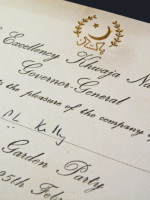 پاکستان
Excellency Khwaja Na
Governor-General
the pleasure of the company of
Garden Party
25th Feb